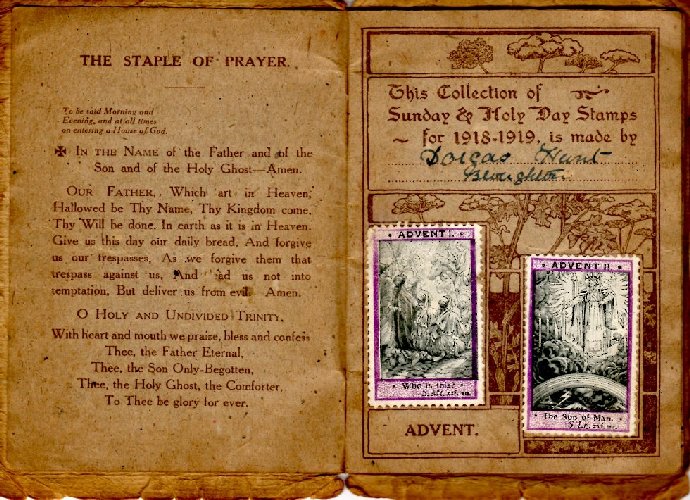 THE STAPLE OF PRAYER.
To be said Morning and
Evening, and at all times
on entering a House of God.
✠ IN THE NAME of the Father and of the
Son and of the Holy Ghost—Amen.
OUR FATHER, Which art in Heaven,
Hallowed be Thy Name, Thy Kingdom come,
Thy Will be done, In earth as it is in Heaven.
Give us this day our daily bread, And forgive
us our trespasses, As we forgive them that
trespass against us, And lead us not into
temptation, But deliver us from evil. Amen.
O HOLY AND UNDIVIDED TRINITY,
With heart and mouth we praise, bless and confess
Thee, the Father Eternal,
Thee, the Son Only-Begotten,
Thee, the Holy Ghost, the Comforter,
To Thee be glory for ever.
This Collection of
Sunday & Holy Day Stamps
for 1918-1919, is made by
Dorcas Hunt
Broughton.
ADVENT I
Who is this?
ADVENT II
The Son of Man.
ADVENT.